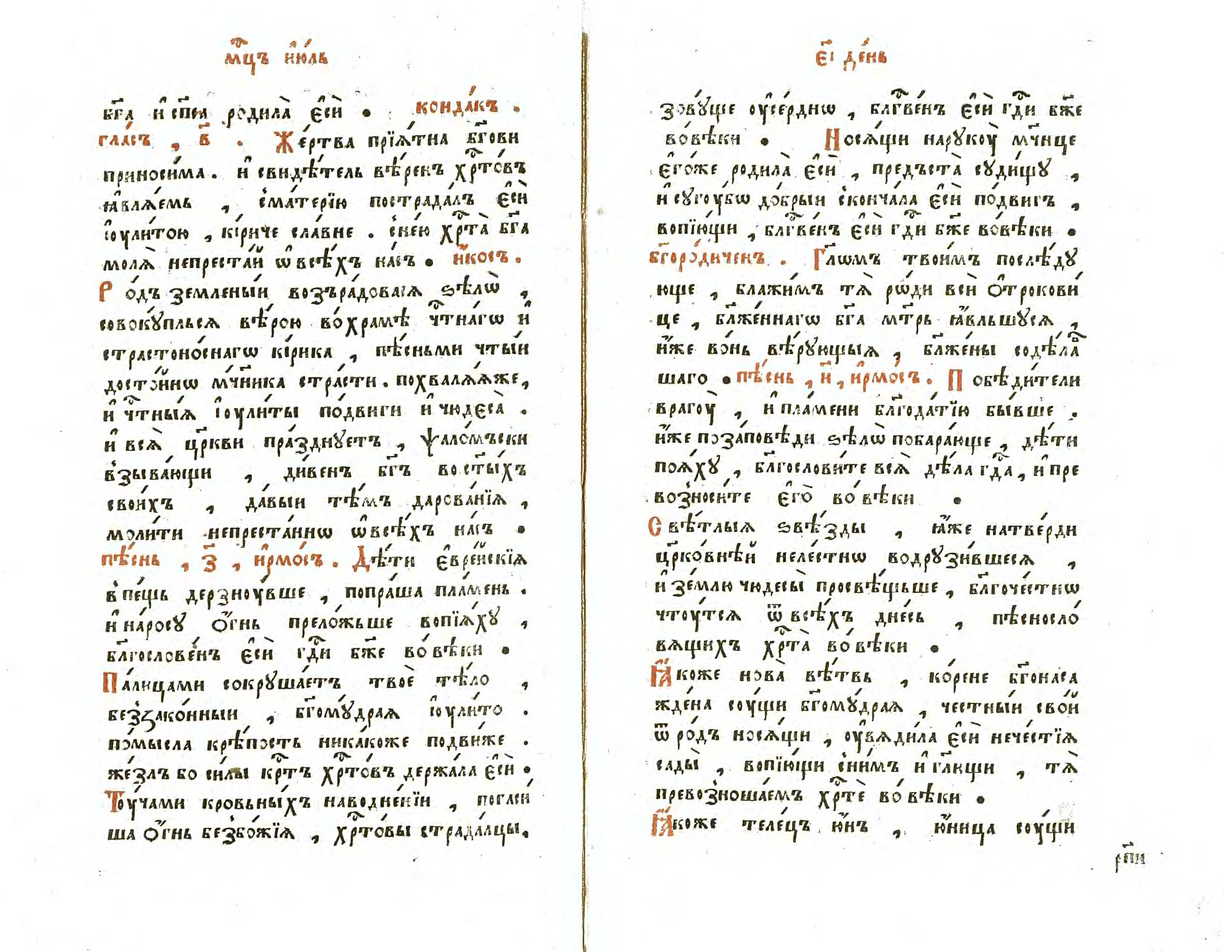 мⷭ҇цъ ию́ль
бг҃а и҆ сп҃са родила̀ є҆сѝ . конда́къ .
гла́съ , в҃ . Же́ртва прїѧ́тна бг҃ови
приноси́ма . и҆ свидѣ́тель вѣ́ренъ хрⷭ҇то́въ
ꙗ҆влѧ́емь , с̾ма́терїю пострада́лъ є҆сѝ
і҆оули́тою , кі́риче сла́вне . с̾не́ю хрⷭ҇та̀ бг҃а
молѧ̀ непреста́й ѡ҆ всѣ́хъ на́съ . и҆́косъ .
Ро́дъ земле́ныи возъра́довасѧ ѕѣлѡ̀ ,
совокꙋ́пльсѧ вѣ́рою во хра́мѣ чтⷭ҇на́гѡ и҆
страстоно́снагѡ кі́рика , пѣ́сньми чты́и
досто́йнѡ мч҃ника стра́сти . похвалѧ́ѧже ,
и҆ чтⷭ҇ны́ѧ і҆оули́ты по́двиги и҆ чюдеса̀ .
и҆ всѧ̀ цр҃кви пра́зднꙋетъ , ѱало́мъски
взыва́ющи , ди́венъ бг҃ъ во ст҃ы́хъ
свои́хъ , да́выи тѣ́мъ дарова́нїѧ ,
моли́ти непреста́ннѡ ѡ҆ всѣ́хъ на́съ .
пѣ́снь , з҃ , и҆рмо́съ . Дѣ́ти є҆вре́йскїѧ
в̾ пе́щь дерзноу́вше , попра́ша пла́мень .
и҆ на́росꙋ ѻ҆́гнь прело́жьше вопїѧ́хꙋ ,
бл҃гослове́нъ є҆сѝ гдⷭ҇и бж҃е во́ вѣки .
Па́лицами сокрꙋша́етъ твоѐ тѣ́ло ,
без̾зако́нныи , бг҃омꙋ́драѧ і҆оули́то .
по́мысла крѣ́пость ника́коже подви́же .
же́злъ бо си́лы крⷭ҇тъ хрⷭ҇то́въ держа́ла є҆сѝ .
Тоу́чами кровьны́хъ наводне́нїи , погаси́
ша ѻ҆́гнь безбо́жїѧ , хрⷭ҇то́вы страда́лцы .
є҃і де́нь
зовꙋ́ще оу҆се́рднѡ , блгⷭ҇ве́нъ є҆сѝ гдⷭ҇и бж҃е
во́ вѣки . Носѧ́щи нарꙋкоу̀ мч҃нце
є҆го́же родила̀ є҆сѝ , предъста̀ сꙋди́щꙋ ,
и҆ сꙋгоу́бѡ до́брыи сконча́ла є҆сѝ по́двигъ ,
вопїю́щи , блгⷭ҇ве́нъ є҆сѝ гдⷭ҇и бж҃е во́ вѣки .
бг҃оро́диченъ . Гла́сѡмъ твои́мъ послѣ́дꙋ
юще , блажи́мъ тѧ̀ ро́ди всѝ ѻ҆трокови́
це , блж҃е́ннагѡ бг҃а мт҃рь ꙗ҆́вльшꙋсѧ ,
и҆́же во́нь вѣ́рꙋющыѧ , блж҃е́ны содѣ́лав
шаго . пѣ́снь , и҃ , и҆рмо́съ . Победи́тели
врагоу̀ , и҆ пла́мени бл҃года́тїю бы́вше .
и҆́же по за́повѣди ѕѣлѡ̀ побара́юще , дѣ́ти
поѧ́хꙋ , бл҃гослови́те всѧ̀ дѣ́ла гдⷭ҇а , и҆ пре
возноси́те є҆го̀ во́ вѣки .
Свѣ́тлыѧ ѕвѣ́зды , ꙗ҆́же на тве́рди
цр҃ко́внѣй неле́стнѡ водрꙋзи́вшесѧ ,
и҆ зе́млю чюдесы̀ просвѣ́щьше , бл҃гоче́стнѡ
чтоу́тсѧ ѿ всѣ́хъ дне́сь , пѣ́снослѡ
вѧ́щихъ хрⷭ҇та̀ во́ вѣки .
Ꙗ҆́коже нова̀ вѣ́твь , ко́рене бг҃онаса
жде́на соу́щи бг҃омꙋ́драѧ , че́стныи сво́й
ѿ ро́дъ носѧ́щи , оу҆вѧди́ла є҆сѝ нече́стїѧ
сады̀ , вопїю́щи с̾ ни́мъ и҆ гл҃ющи , тѧ̀
превозноша́емъ хрⷭ҇тѐ во́ вѣки .
Ꙗ҆́коже теле́цъ ю҆́нъ , ю҆́ница соу́щи
рп҃и